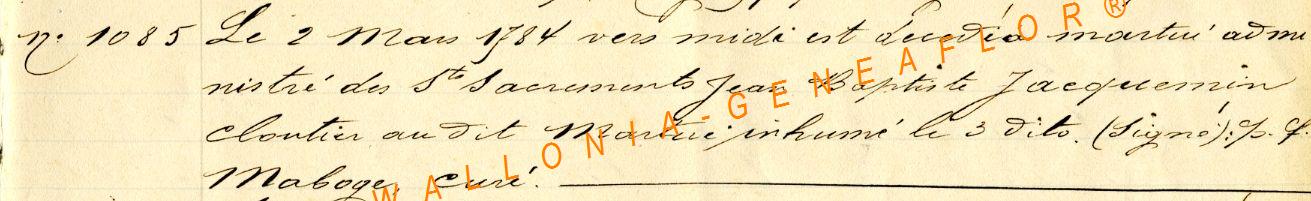 n° 1085 Le 2 Mars 1784 vers midi est décédé martué admi
nistré des Sts Sacrements Jean Baptiste Jacquemin
cloutier au dit Martué, inhumé le 3 dito. (Signé): p. f.
Maboge, curé.
WALLONIA-GENEAFLOR®